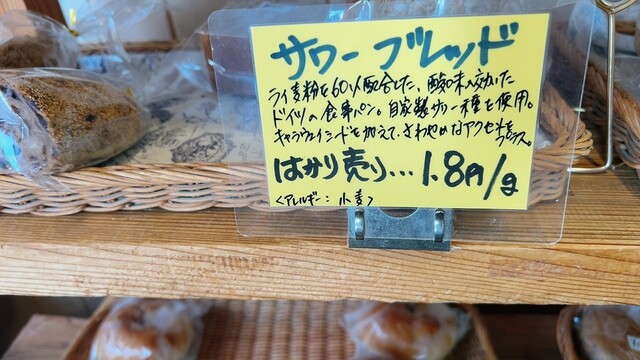 サワーブレッド
ライ麦粉を60%配合した、酸味の効いた
ドイツの食事パン。自家製サワー種を使用。
キャラウェイシードを加えて、さわやかなアクセントをプラス。
はかり売り…1.8円/g
<アレルギー:小麦>